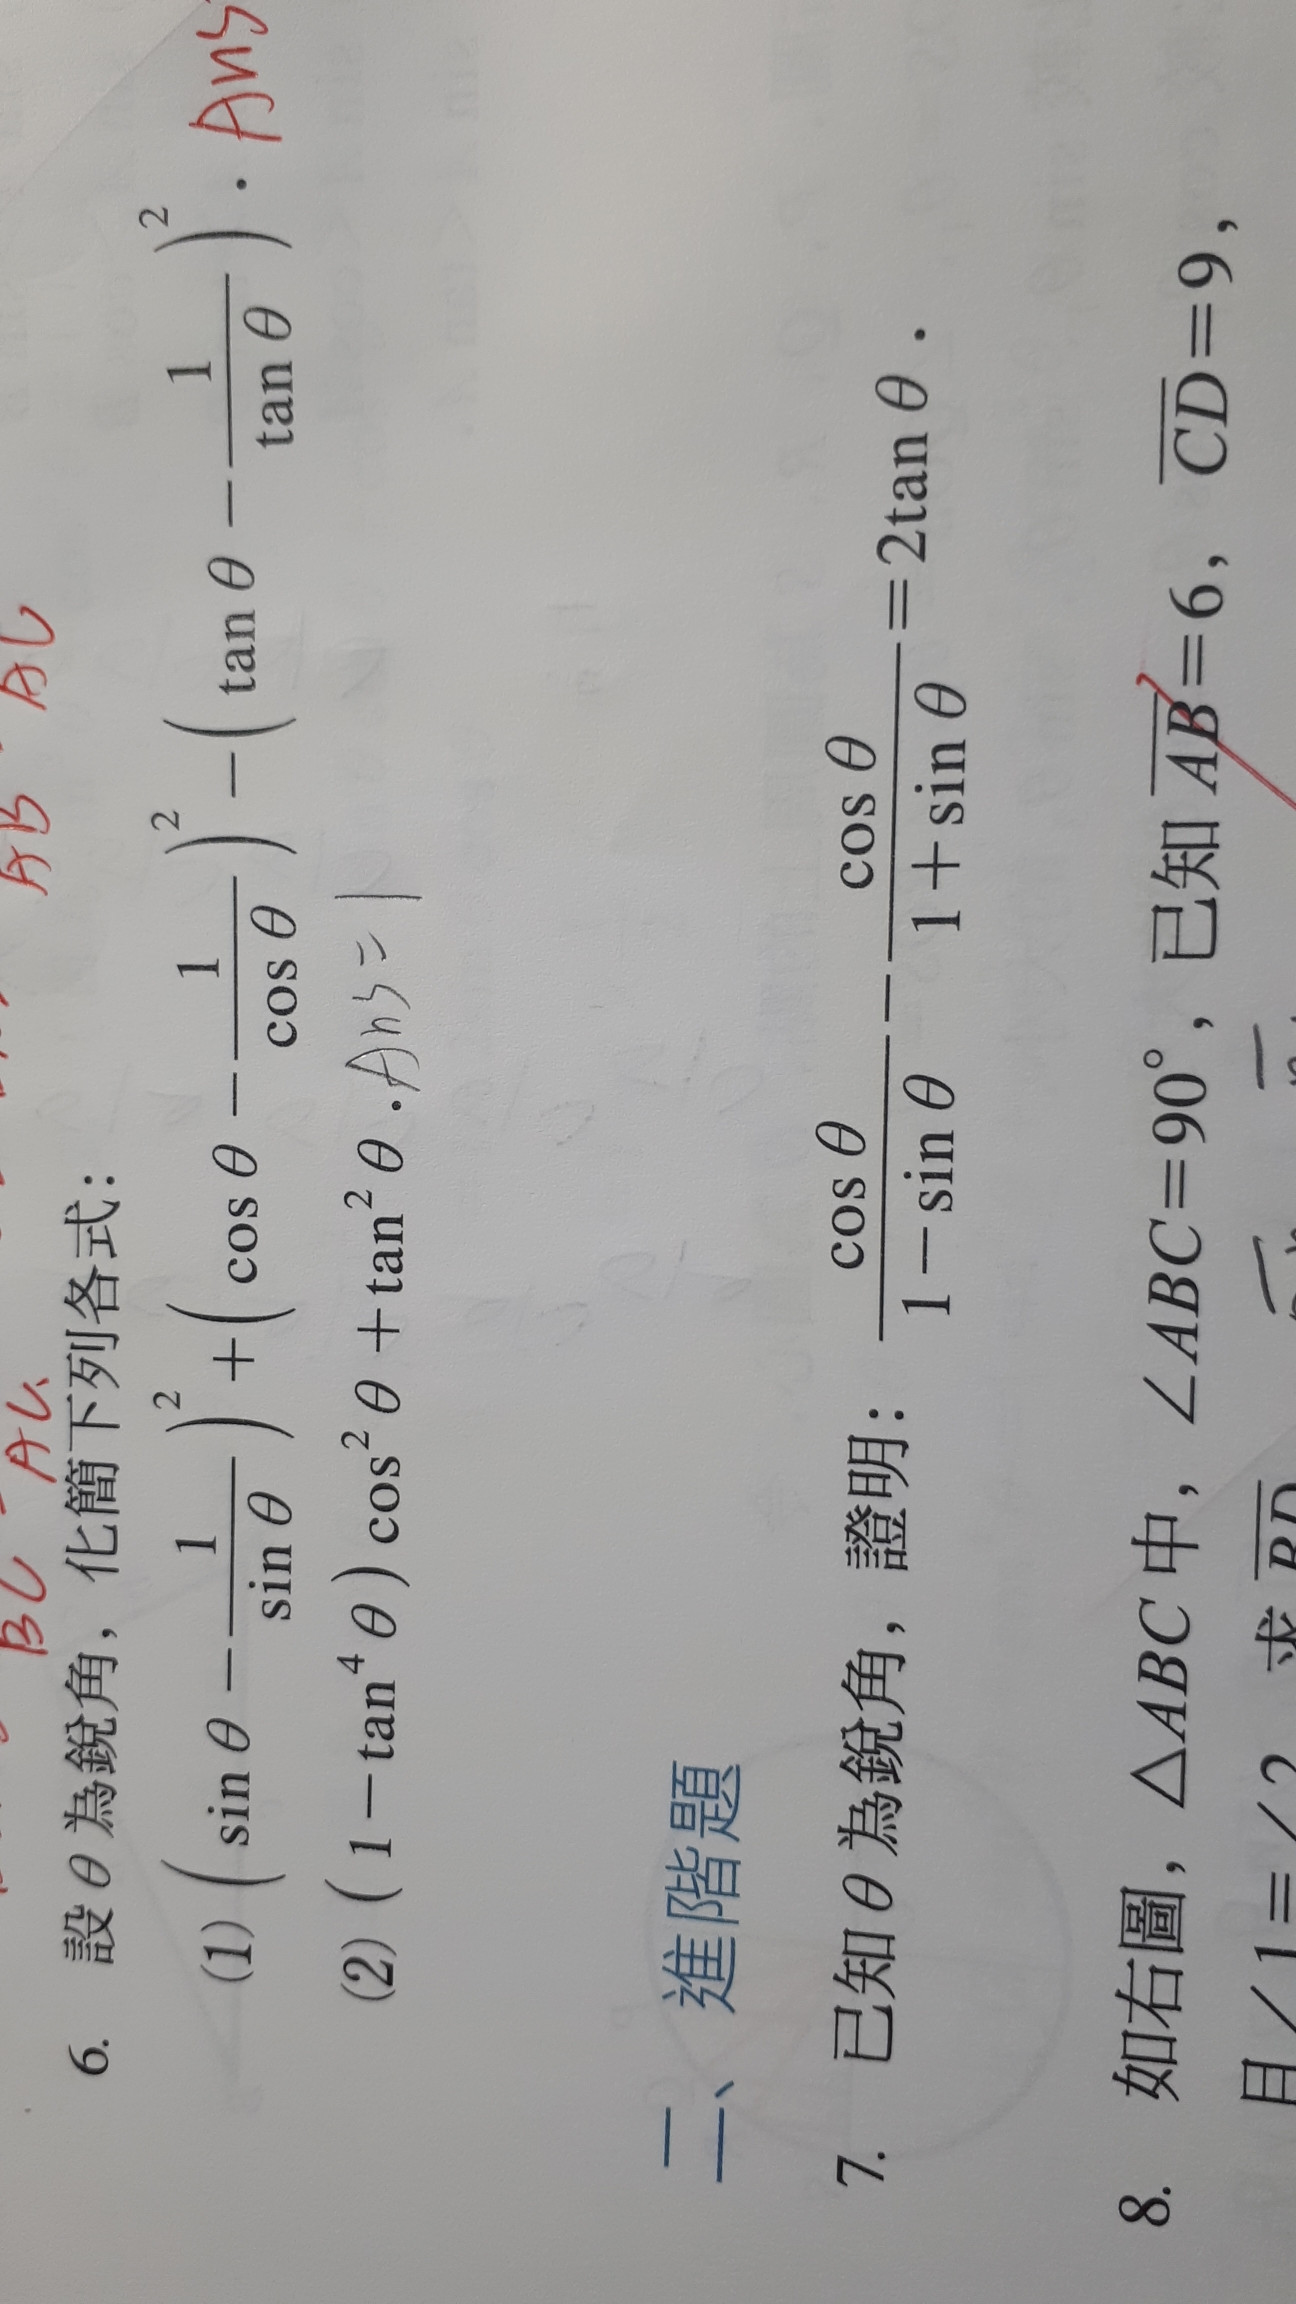 BC AC AB AC
6. 設 θ 為銳角，化簡下列各式：
(1) (sin θ − 1/sin θ)² + (cos θ − 1/cos θ)² − (tan θ − 1/tan θ)². Ans
(2) (1 − tan⁴ θ) cos² θ + tan² θ. Ans = 1
二、進階題
7. 已知 θ 為銳角，證明： cos θ/(1 − sin θ) − cos θ/(1 + sin θ) = 2tan θ.
8. 如右圖，△ABC 中，∠ABC = 90°，已知 A̅B̅ = 6，C̅D̅ = 9，
且∠1 = ∠2，求 B̅D̅